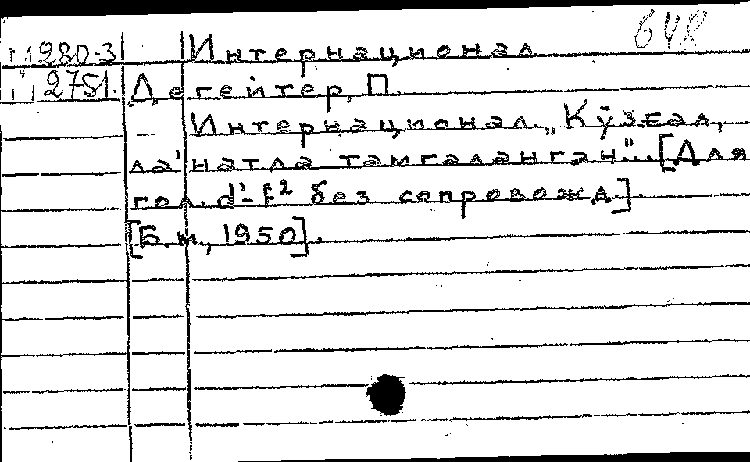 648
1980-3 Интернационал
2751. Дегейтер, П.
Интернационал. „Кўзғал,
ла'натла тамғаланган"... [Для
гол. d¹-f² без сопровожд.]
[Б.м., 1950].